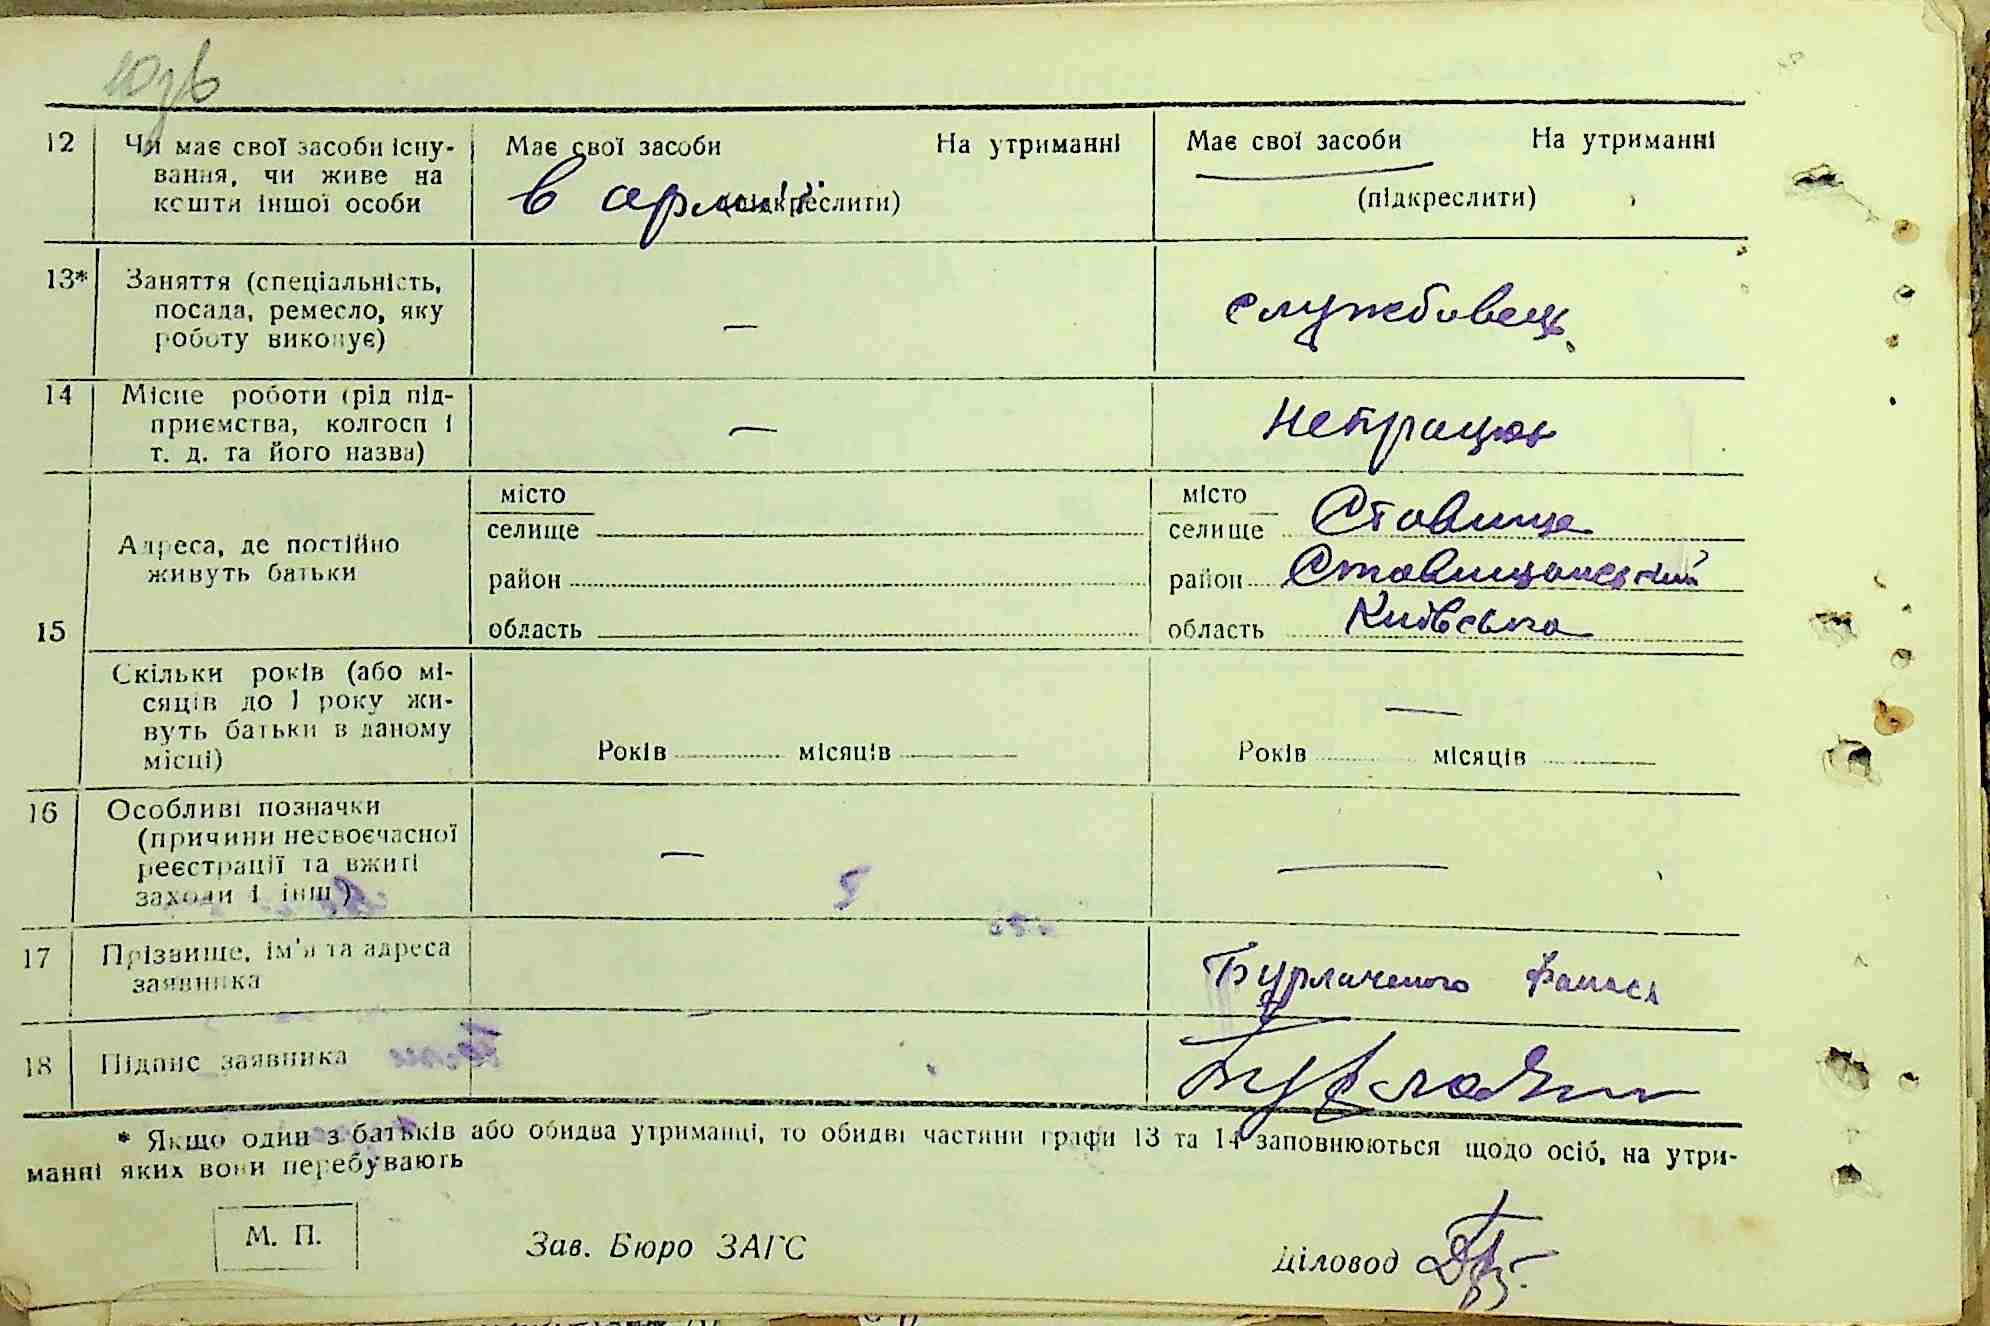 12
Чи має свої засоби існу-
вання, чи живе на
кошти іншої особи
Має свої засоби На утриманні
в армії
(підкреслити)
Має свої засоби На утриманні
(підкреслити)
13*
Заняття (спеціальність,
посада, ремесло, яку
роботу виконує)
—
службовець
14
Місце роботи (рід під-
приємства, колгосп і
т. д. та його назва)
—
непрацює
15
Адреса, де постійно
живуть батьки
місто
селище
район
область
місто
селище Ставище
район Ставищанський
область Київська
Скільки років (або мі-
сяців до 1 року жи-
вуть батьки в даному
місці)
Років місяців
—
Років місяців
16
Особливі позначки
(причини несвоєчасної
реєстрації та вжиті
заходи і інш)
—
—
17
Прізвище, ім'я та адреса
заявника
Бурлаченко
18
Підпис заявника
* Якщо один з батьків або обидва утриманці, то обидві частини графи 13 та 14 заповнюються щодо осіб, на утри-
манні яких вони перебувають
М. П.
Зав. Бюро ЗАГС
Діловод